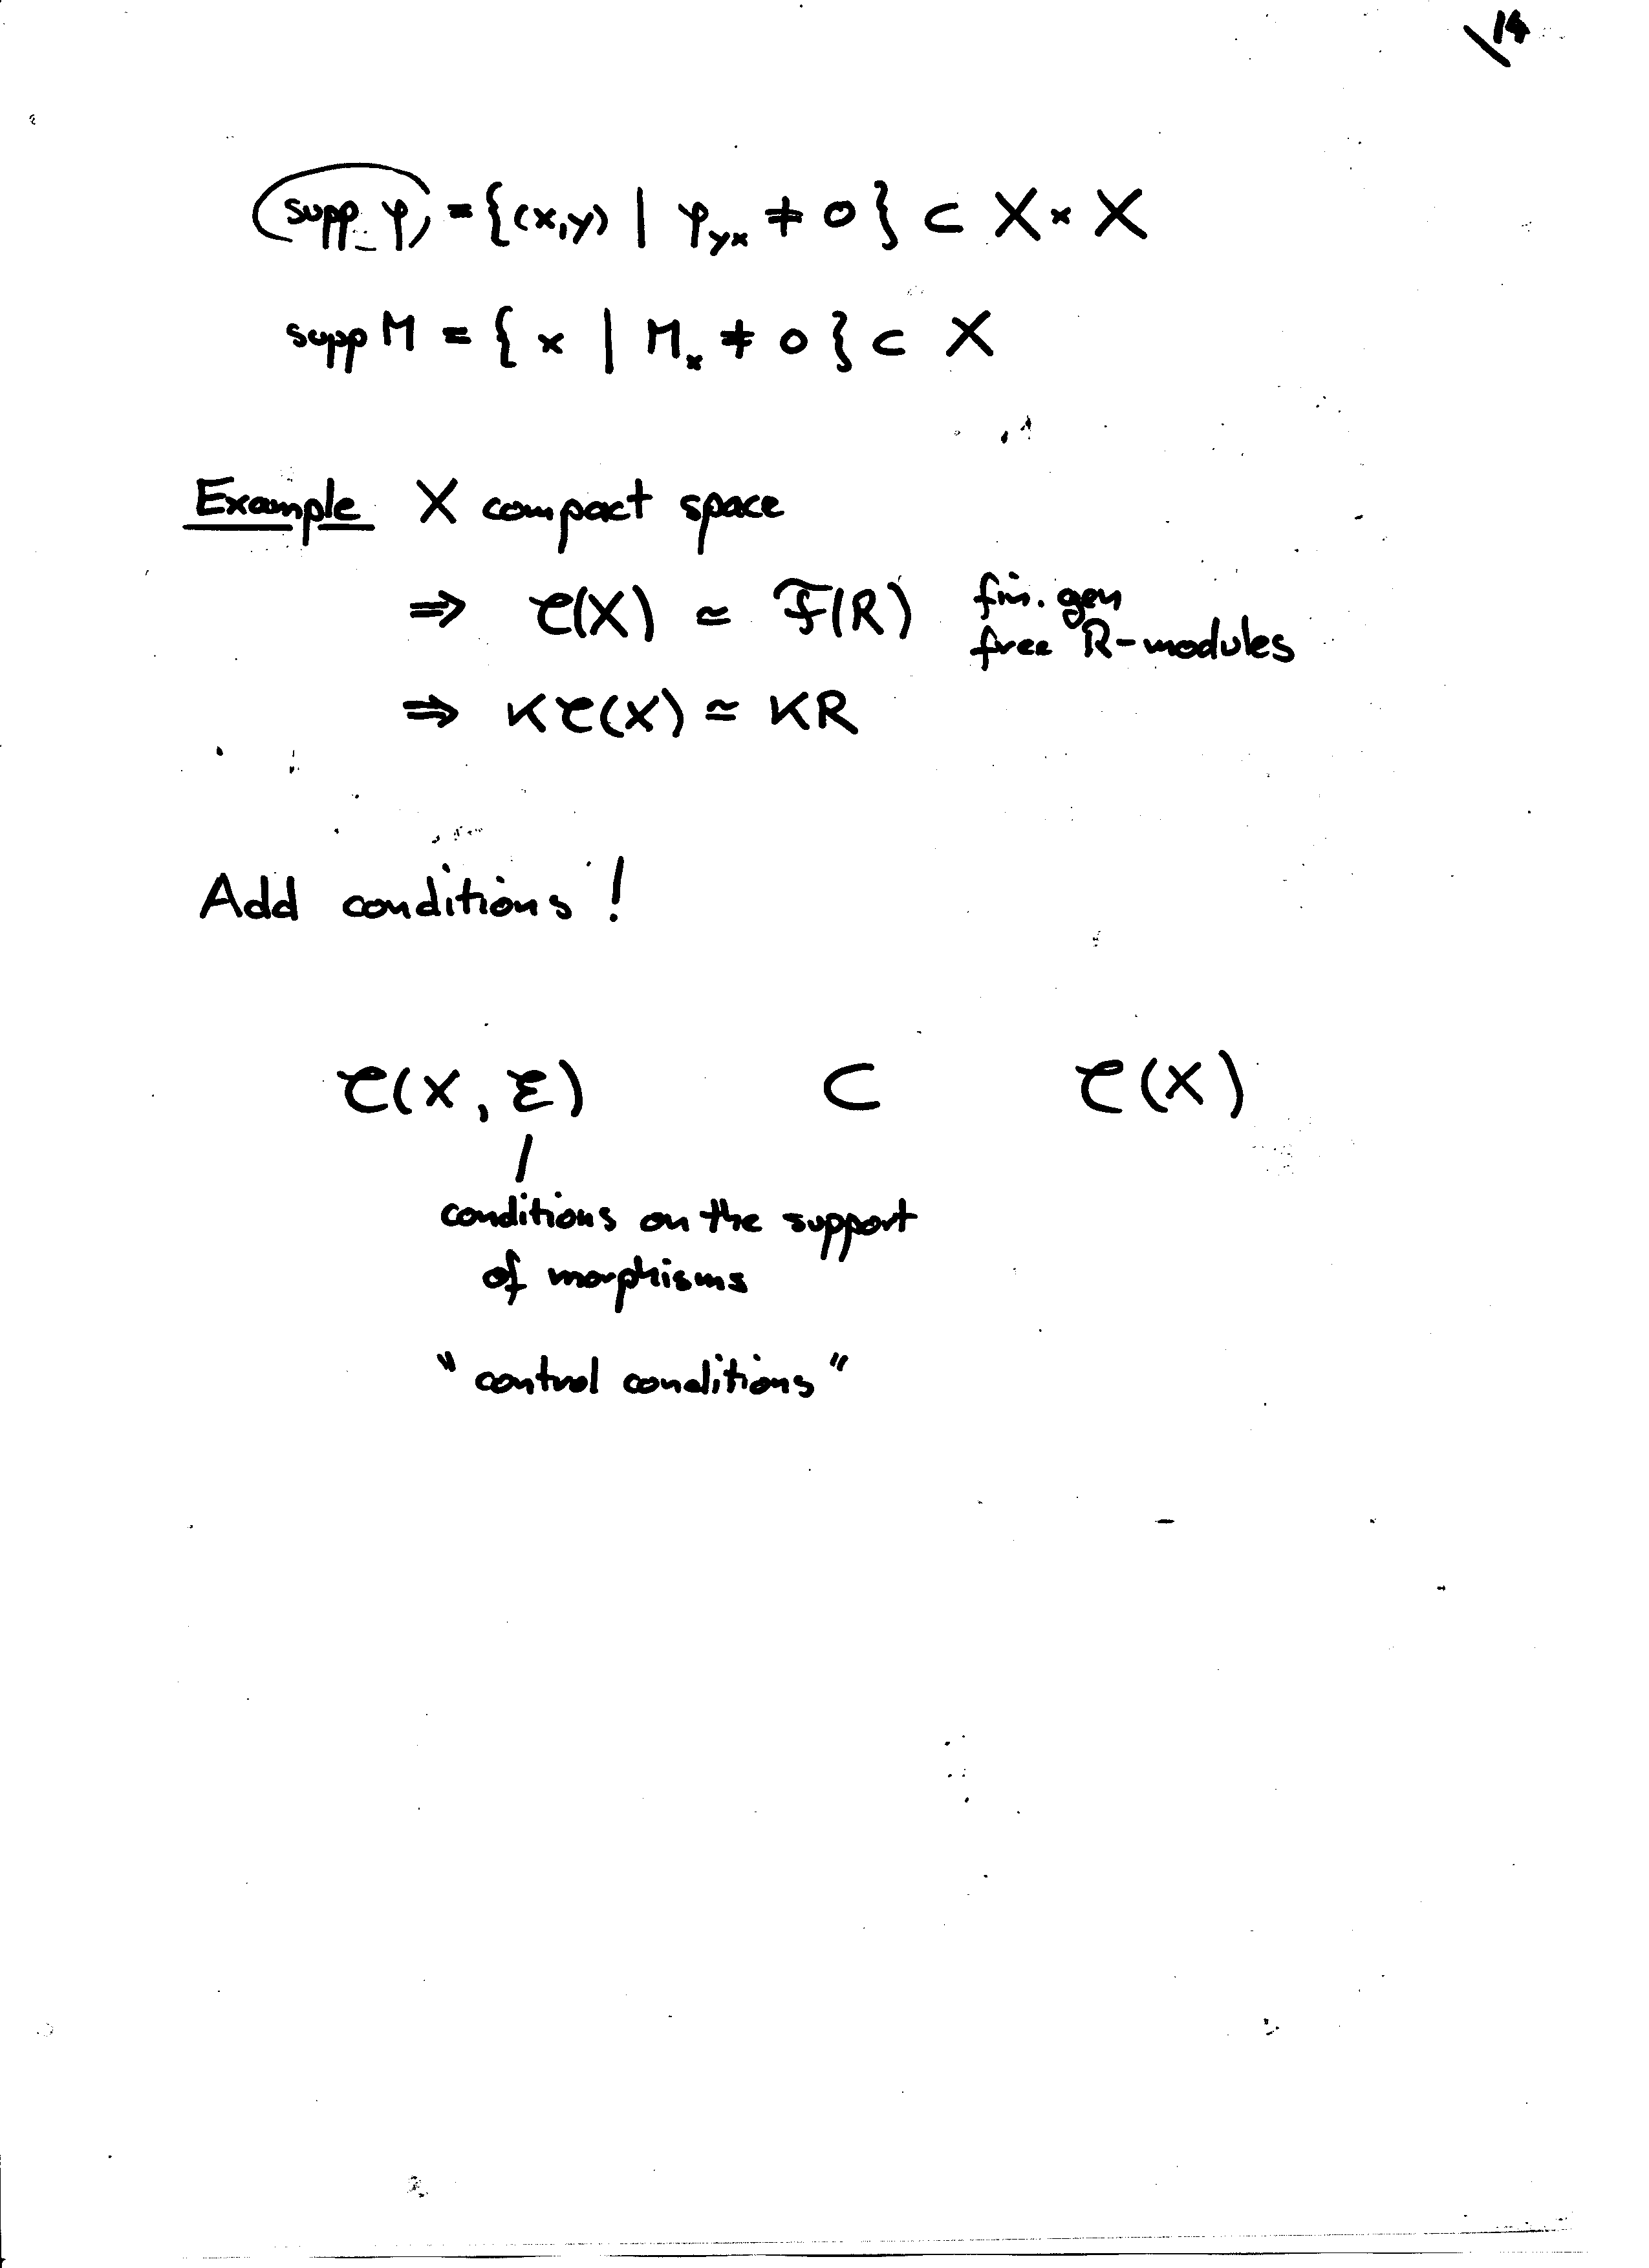 14
supp φ = {(x,y) | φ_yx ≠ 0} ⊂ X × X
supp M = { x | M_x ≠ 0 } ⊂ X
Example X compact space
⇒ 𝒞(X) ≃ ℱ(R) fin. gen
free R-modules
⇒ K𝒞(X) ≃ KR
Add conditions !
𝒞(X, ℰ) ⊂ 𝒞(X)
conditions on the support
of morphisms
"control conditions"